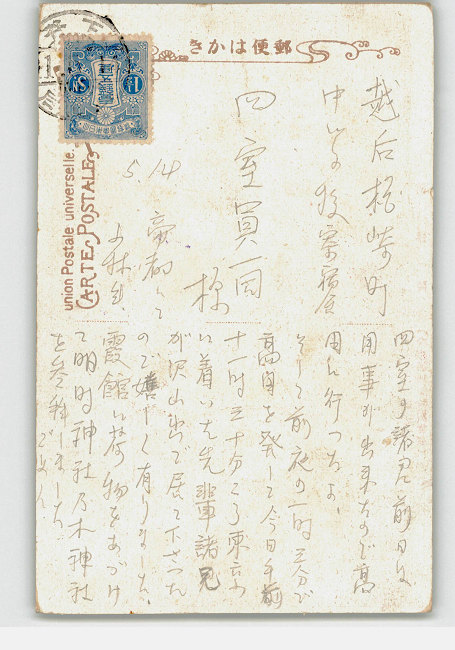 きかは便郵
union Postale universelle.
CARTE POSTALE
越后柏崎町
中学校寄宿舎
四室員一同
様
5.14
帝都にて
四室の諸君 前日は
用事が出来たので高
田に行つたよ、
そして前夜の一時三分で
高田を発して今日午前
十一時三十分ころ東京
に着いた先輩諸兄
が沢山出で居て下さつた
ので嬉しく有りました、
霞館に荷物をあづけ
て明時神社乃木神社
を参拜しました